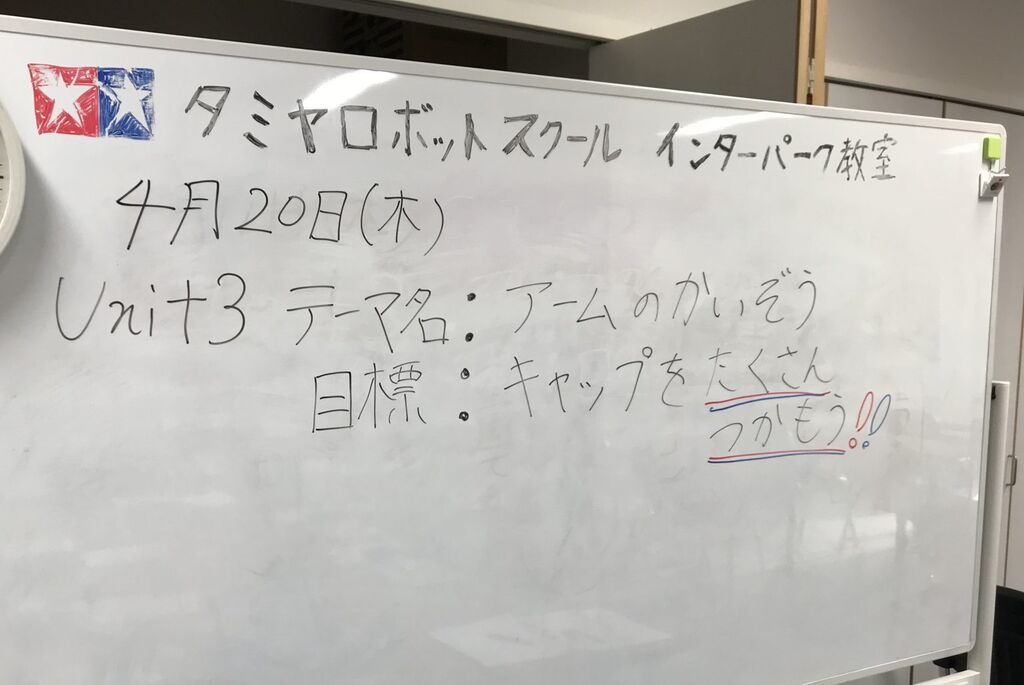 タミヤロボットスクール インターパーク教室
4月20日(木)
Unit3 テーマ名：アームのかいぞう
目標：キャップをたくさん
つかもう!!